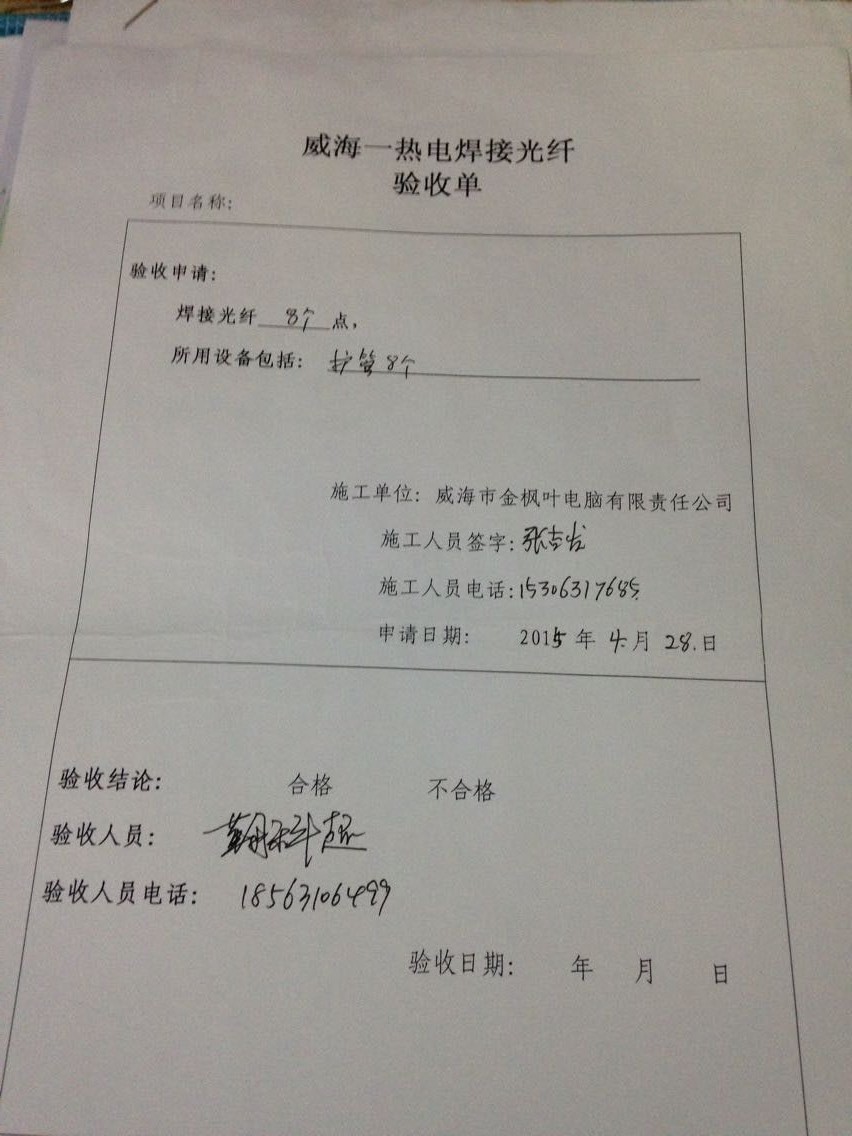 威海一热电焊接光纤
验收单
项目名称:
验收申请:
焊接光纤 8个 点,
所用设备包括: 护管8个
施工单位: 威海市金枫叶电脑有限责任公司
施工人员签字: 张吉光
施工人员电话:15306317685
申请日期: 2015 年 4 月 28 日
验收结论: 合格 不合格
验收人员:
验收人员电话: 18563106499
验收日期: 年 月 日